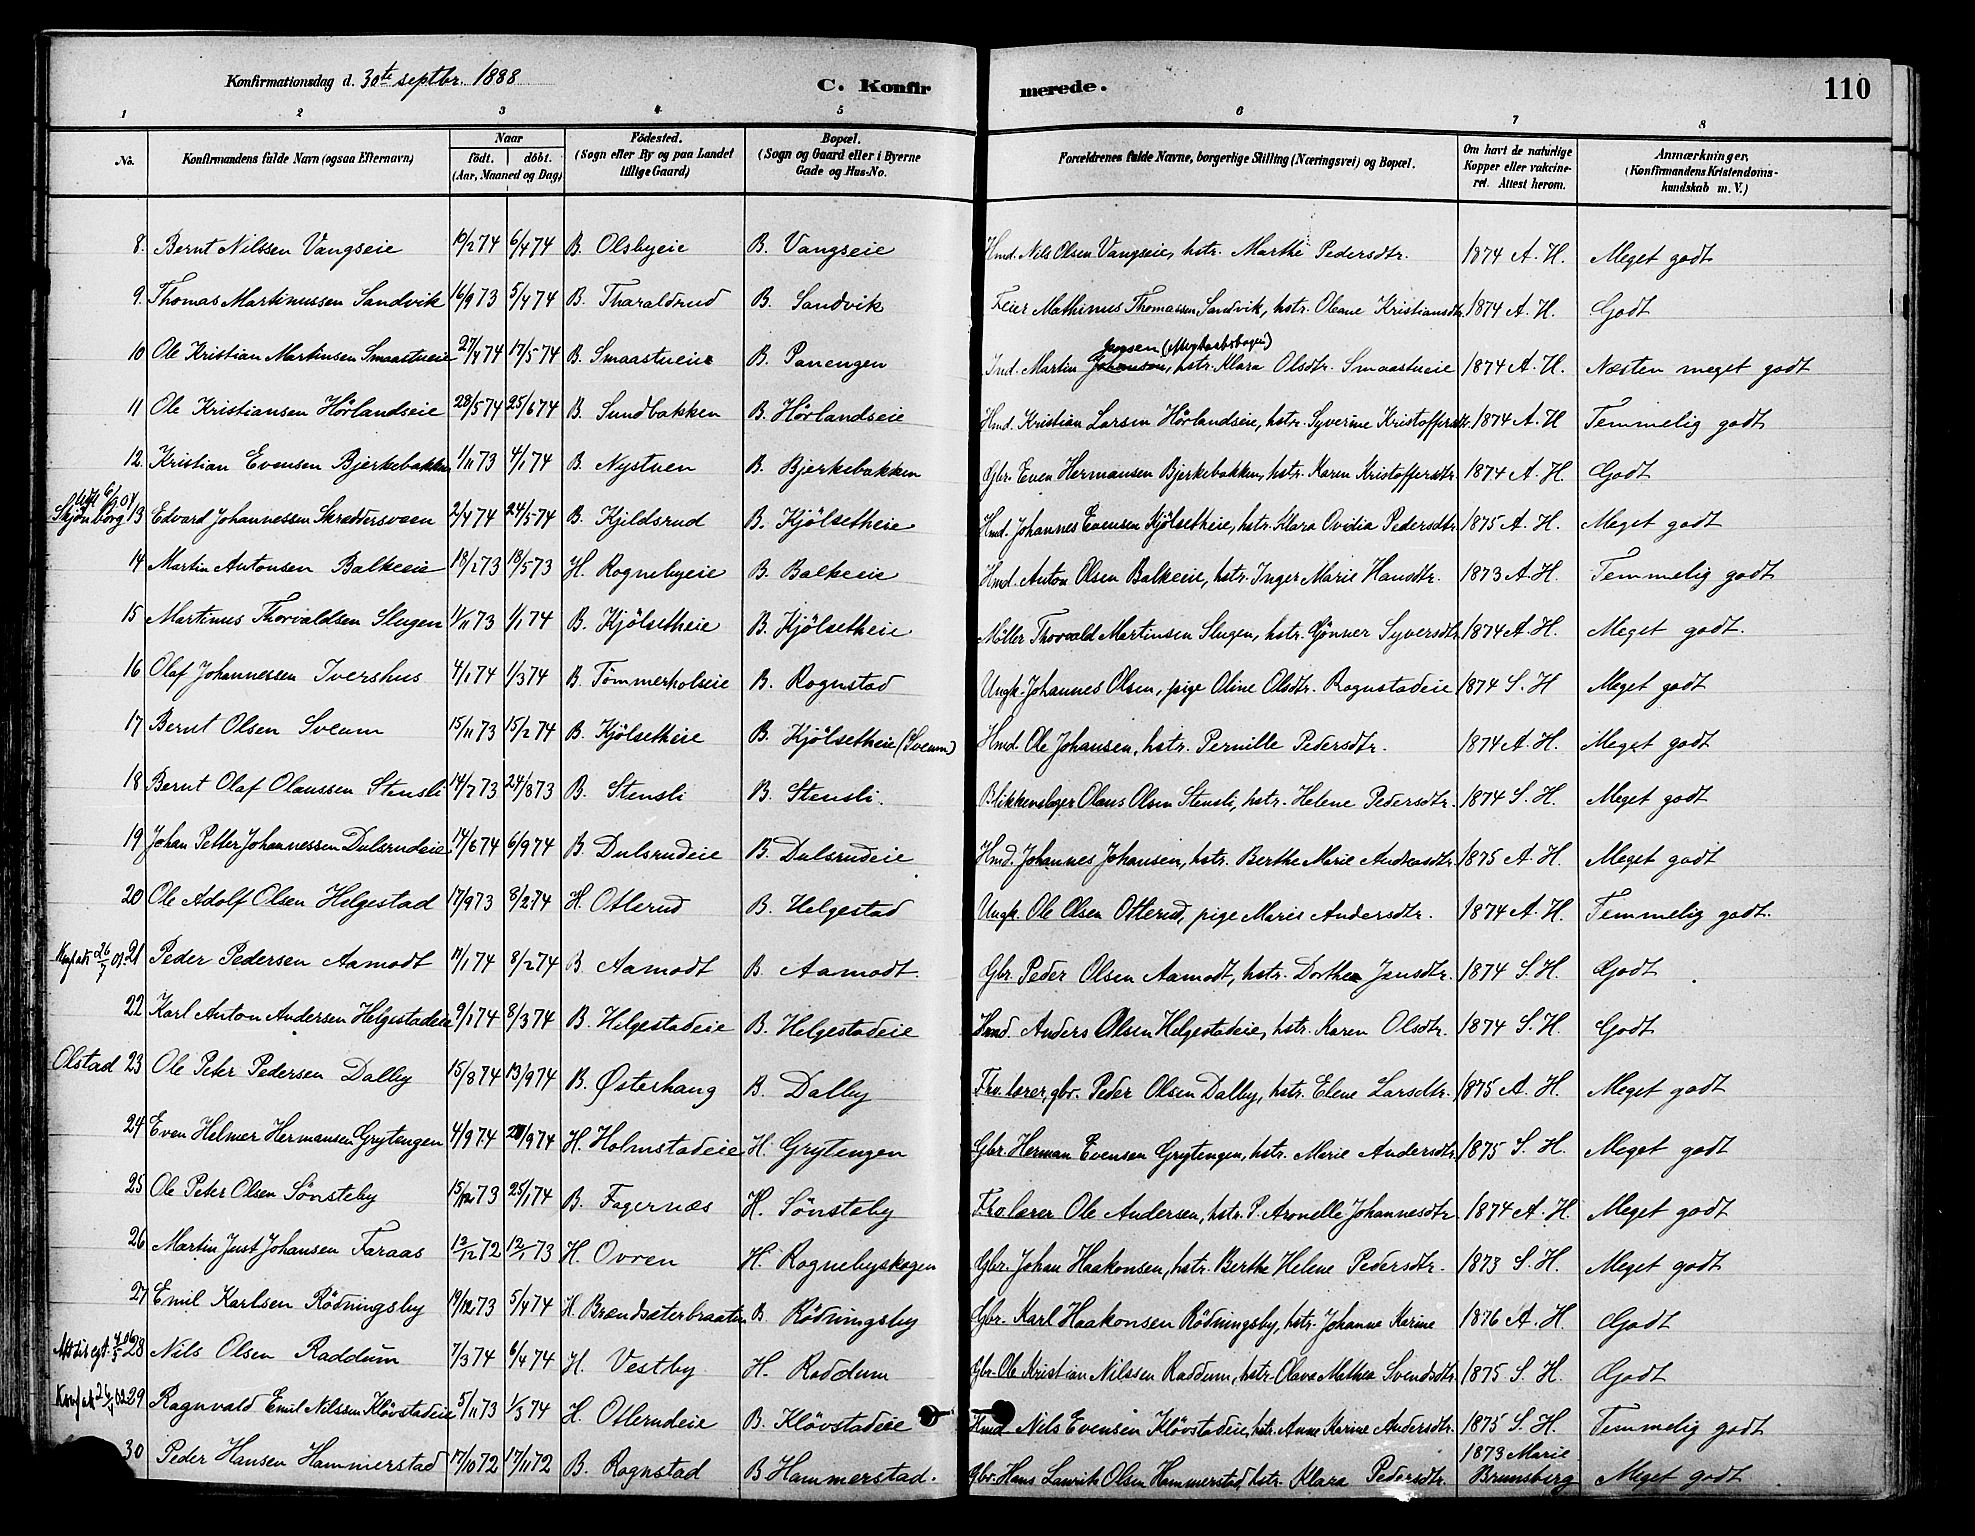 Konfirmationsdag d. 30te septbr. 1888 C. Konfirmerede. 110
1 2 3 4 5 6 7 8
No. Konfirmandens fulde Navn (ogsaa Efternavn) Naar født. døbt. (Aar, Maaned og Dag) Fødested. (Sogn eller By og paa Landet tillige Gaard) Bopæl. (Sogn og Gaard eller i Byerne Gade og Hus-No. Forældrenes fulde Navne, borgerlige Stilling (Næringsvei) og Bopæl. Om havt de naturlige Kopper eller vakcineret. Attest herom. Anmærkninger. (Konfirmandens Kristendomskundskab m. V.)
8. Bernt Nilssen Vangseie 10/2 74 6/4 74 B. Olsbyeie B. Vangseie Hmd. Nils Olsen Vangseie, hstr. Marthe Pedersdtr. 1874 A. H. Meget godt
9. Thomas Martinussen Sandvik 16/9 73 5/4 74 B. Tharaldrud B. Sandvik Feier Mathinus Thomassen Sandvik, hstr. Oleane Kristiansdtr. 1874 A. H. Godt
10 Ole Kristian Martinsen Smaastueie 27/4 74 17/5 74 B. Smaastueie B. Panengen Ind. Martin Johansen, hstr. Klara Olsdtr. Smaastueie 1874 A. H. Næsten meget godt
11 Ole Kristiansen Hörlandseie 28/5 74 25/6 74 B. Sundbakken B. Hörlandseie Hmd. Kristian Larsen Hörlandseie, hstr. Syverine Kristoffersdtr. 1874 A. H Temmelig godt
12. Kristian Evensen Bjerkebakken 1/11 73 4/1 74 B. Nystuen B. Bjerkebakken Gbr. Even Hermansen Bjerkebakken, hstr. Karen Kristoffersdtr. 1874 A. H. Godt
Skjönborg 13 Edvard Johannessen Skræddersveen 2/4 74 24/5 74 B. Kjildsrud B. Kjölsetheie Hmd. Johannes Evensen Kjölsetheie, hstr. Klara Ovidia Pedersdtr. 1875 A. H. Meget godt
14 Martin Antonsen Balkeeie 18/1 73 18/5 73 H. Rognebyeie B. Balkeeie Hmd. Anton Olsen Balkeeie, hstr. Inger Marie Hansdtr. 1873 A. H. Temmelig godt
15 Martinus Thorvaldsen Slugen 1/11 73 1/1 74 B. Kjölsetheie B. Kjölsetheie Möller Thorvald Martinsen Slugen, hstr. Gönner Syversdtr. 1874 A. H. Meget godt.
16 Olaf Johannessen Ivershus 4/1 74 1/3 74 B. Tömmerholseie B. Rognstad Ungk. Johannes Olsen, pige Oline Olsdtr. Rognstadeie 1874 S. H Meget godt
17 Bernt Olsen Sveum 15/11 73 15/2 74 B. Kjölsetheie B. Kjölsetheie (Sveum) Hmd. Ole Johansen, hstr. Pernille Pedersdtr. 1874 A. H. Meget godt
18 Bernt Olaf Olaussen Stensli 14/7 73 24/8 73 B. Stensli B. Stensli. Blikkenslager Olaus Olsen Stensli, hstr. Helene Pedersdtr. 1874 S. H. Meget godt
19 Johan Petter Johannessen Dulsrudeie 14/6 74 6/9 74 B. Dulsrudeie B. Dulsrudeie Hmd. Johannes Johansen, hstr. Berthe Marie Andreasdtr. 1875 A. H. Meget godt
20 Ole Adolf Olsen Helgestad 17/9 73 8/2 74 H. Otterud B. Helgestad Ungk. Ole Olsen Otterud, pige Maris Andersdtr. 1874 A. H. Temmelig godt.
21 Peder Pedersen Aamodt 11/1 74 8/2 74 B Aamodt B. Aamodt Gbr. Peder Olsen Aamodt, hstr. Dorthea Jensdtr. 1874 S. H. Godt
22 Karl Anton Andersen Helgestadeie 9/1 74 8/3 74 B. Helgestadeie B. Helgestadeie Hmd. Anders Olsen Helgestadeie, hstr. Karen Olsdtr. 1874 S. H. Godt
Olstad 23 Ole Peter Pedersen Dalby 15/8 74 13/9 74 B. Østerhang B. Dalby gbr. Peder Olsen Dalby, hstr. Elene Larsdtr. 1875 A. H. Meget godt
24 Even Helmer Hermansen Grytengen 4/9 74 /9 74 H. Holmstadeie H. Grytengen Gbr. Herman Evensen Grytengen, hstr. Marie Andersdtr. 1875 S. H. Meget godt
25 Ole Peter Olsen Sönsteby 15/12 73 25/1 74 B. Fagernæs H. Sönsteby Ole Andersen, hstr. P. Aronelle Johannesdtr 1874 A. H. Meget godt
26 Martin Just Johansen Faraas 13/12 72 12/1 73 H. Ovren H. Rognebyskogen Gbr. Johan Haakonsen, hstr. Berthe Helene Pedersdtr. 1873 S. H. Meget godt
27 Emil Karlsen Rödningsby 19/12 73 5/4 74 H. Brændsæterbraaten B Rödningsby Gbr. Karl Haakonsen Rödningsby, hstr. Johanne Karine 1876 A. H. Godt
28 Nils Olsen Raddum 7/3 74 6/4 74 H. Vestby H. Raddum Gbr. Ole Kristian Nilssen Raddum, hstr. Olava Mathea Svendsdtr. 1875 S. H. Godt
29 Ragnvald Emil Nilssen Klövstadeie 5/11 73 1/3 74 H. Otterudeie B. Klövstadeie Hmd Nils Evensen Klövstadeie, hstr. Anne Karine Andersdtr. 1875 S. H. Temmelig godt
30 Peder Hansen Hammerstad 17/10 72 17/11 72 B. Rognstad B Hammerstad. Gbr. Hans Laurits Olsen Hammerstad, hstr. Klara Pedersdtr. 1873 Marie Brunsberg Meget godt